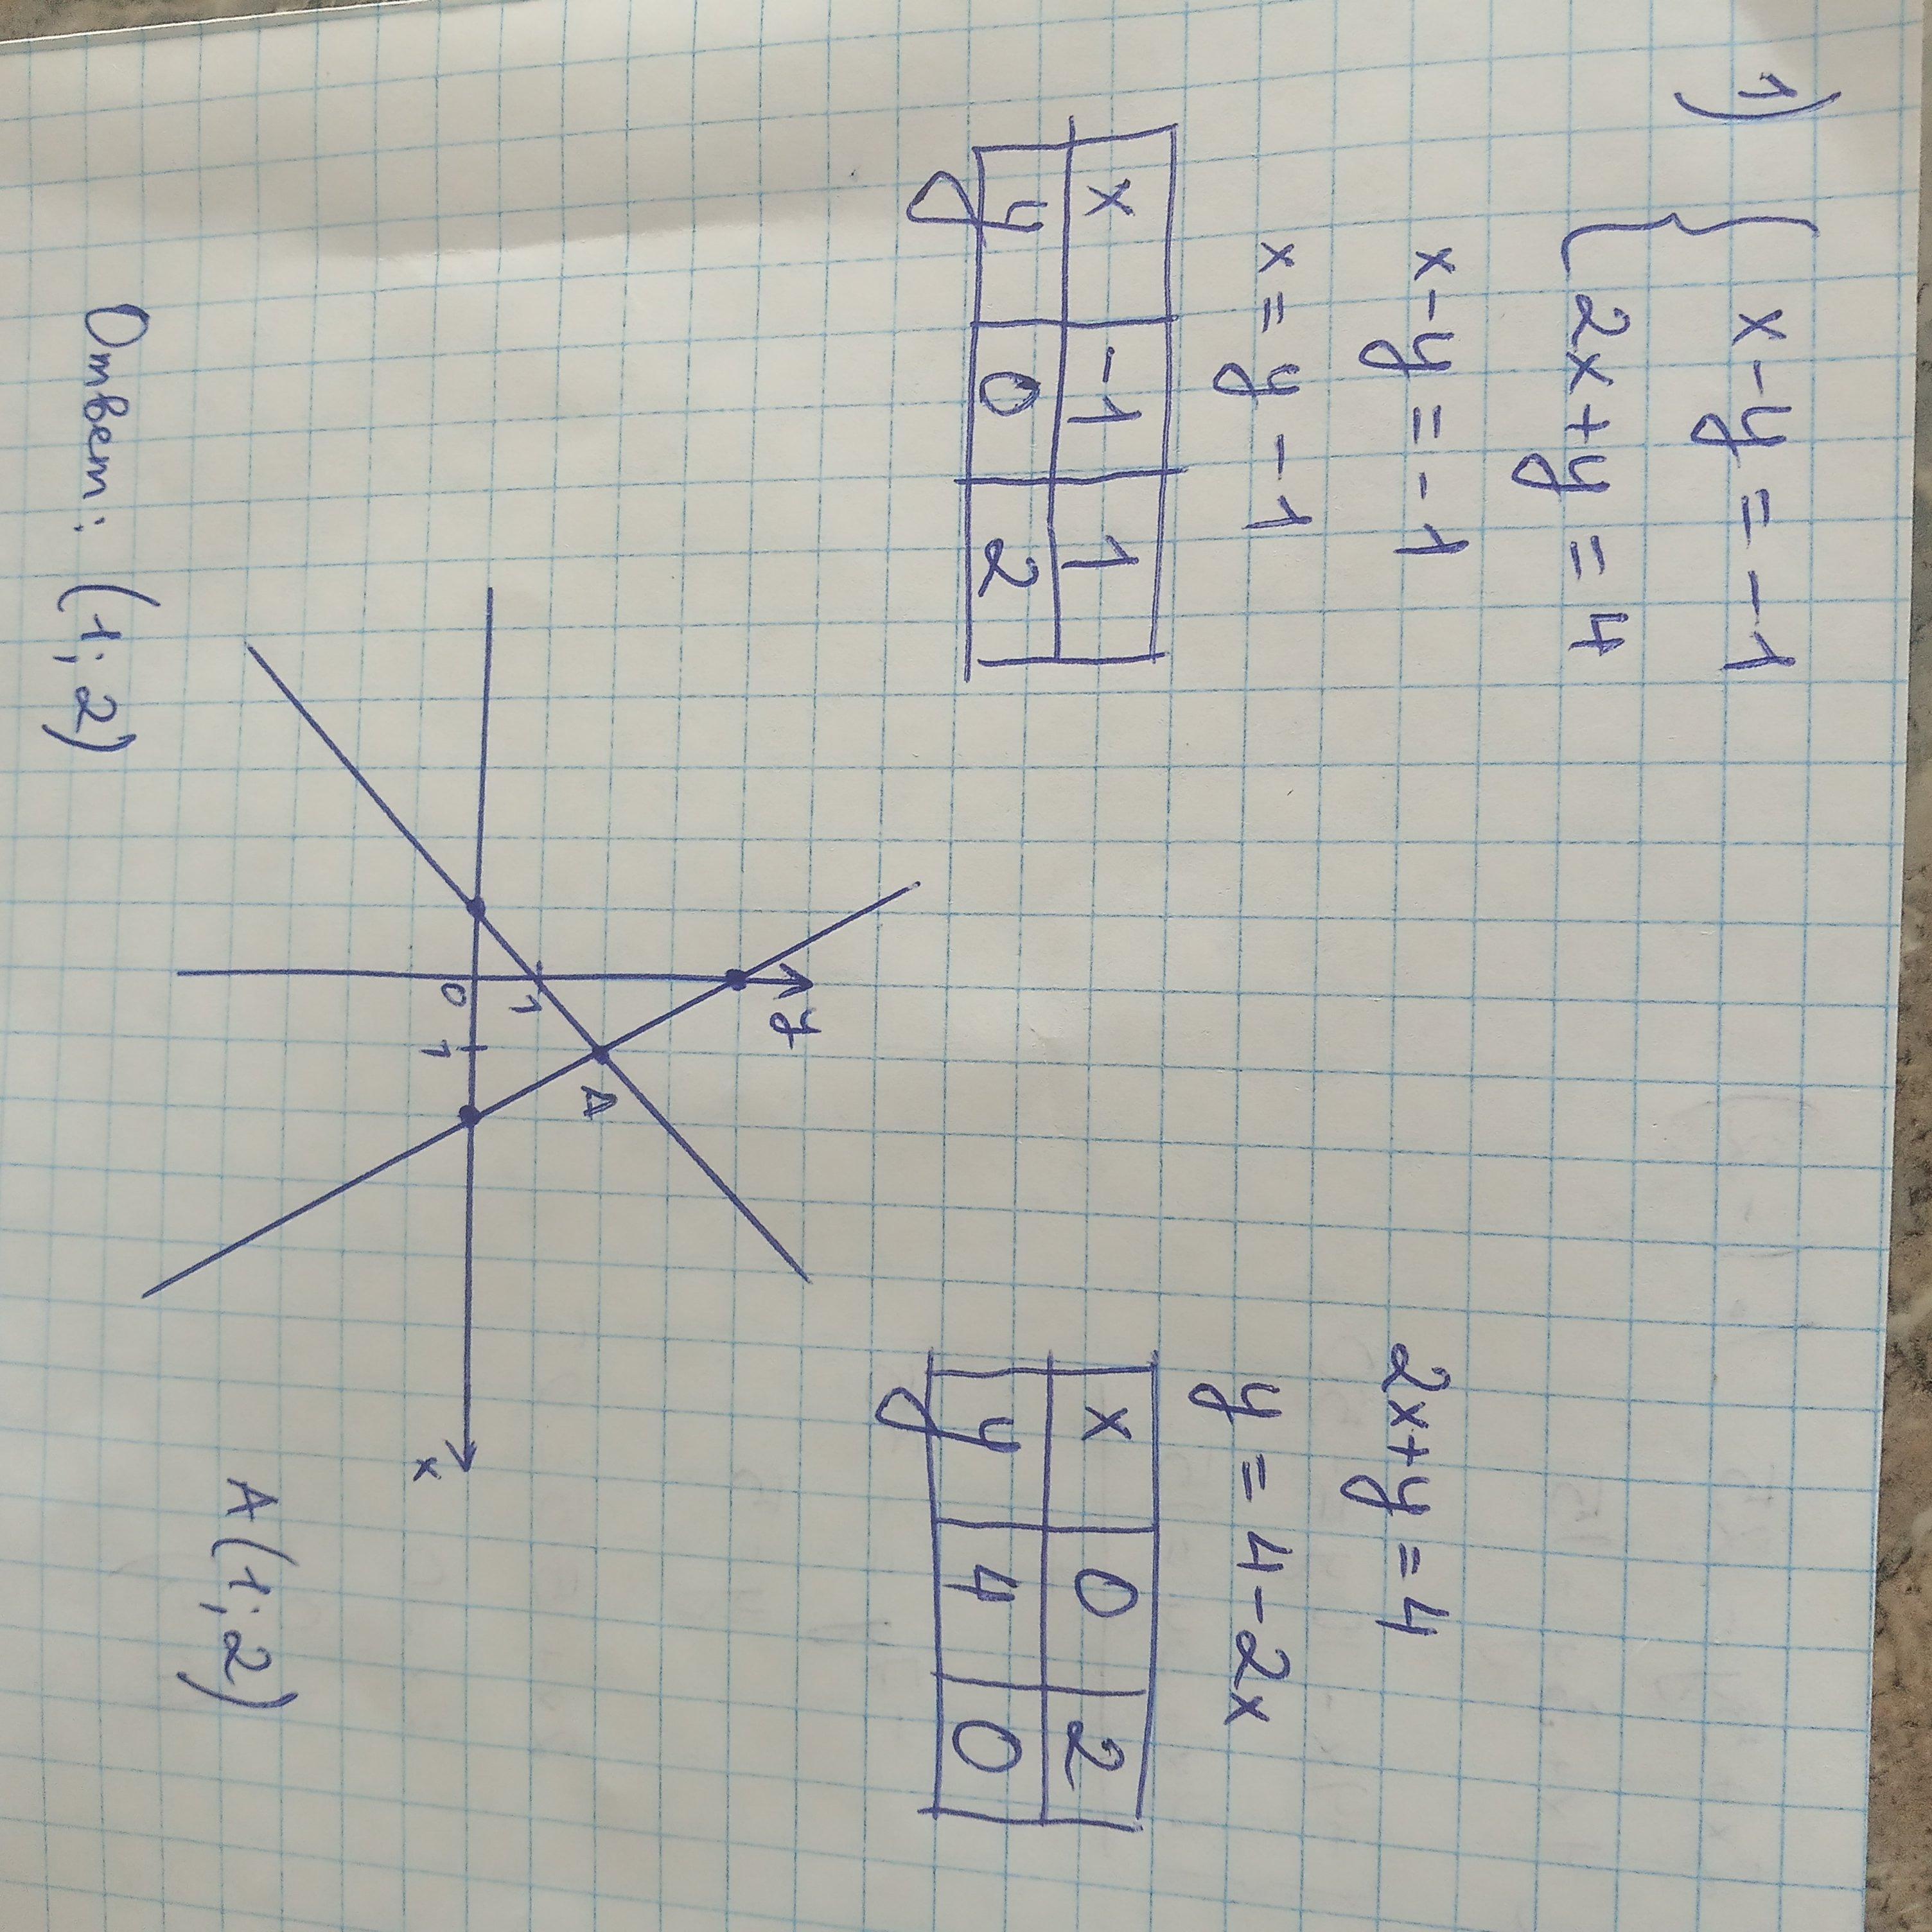 1) { x-y = -1
2x+y = 4
x-y = -1
x = y - 1
x -1 1
y 0 2
2x+y = 4
y = 4-2x
x 0 2
y 4 0
y
A
1
0 1
x
A(1; 2)
Ответ: (1; 2)